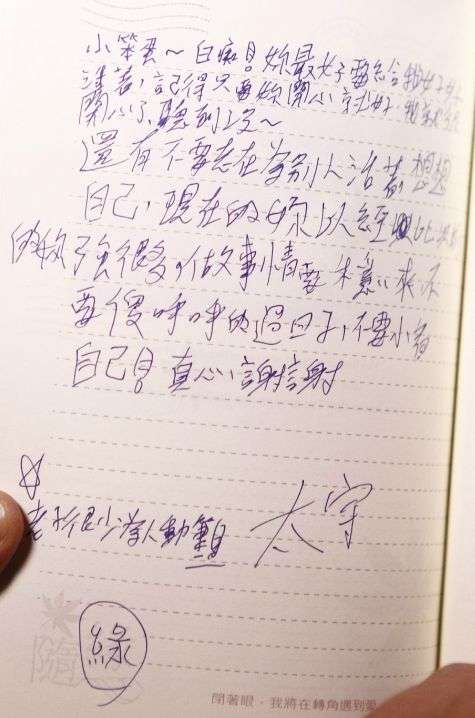 小笨蛋~白痴!妳最好要給我好好
活著!記得只要妳開心就好,我
開心了聽到沒~
還有不要老在為別人活著想想
自己,現在的妳以經比以前
的妳強很多!做事情要 來不
要傻呼呼的過日子,不要小看
自己!真心
老子很少為人動筆
太守
綠
隨
閉著眼,我將在轉角遇到愛